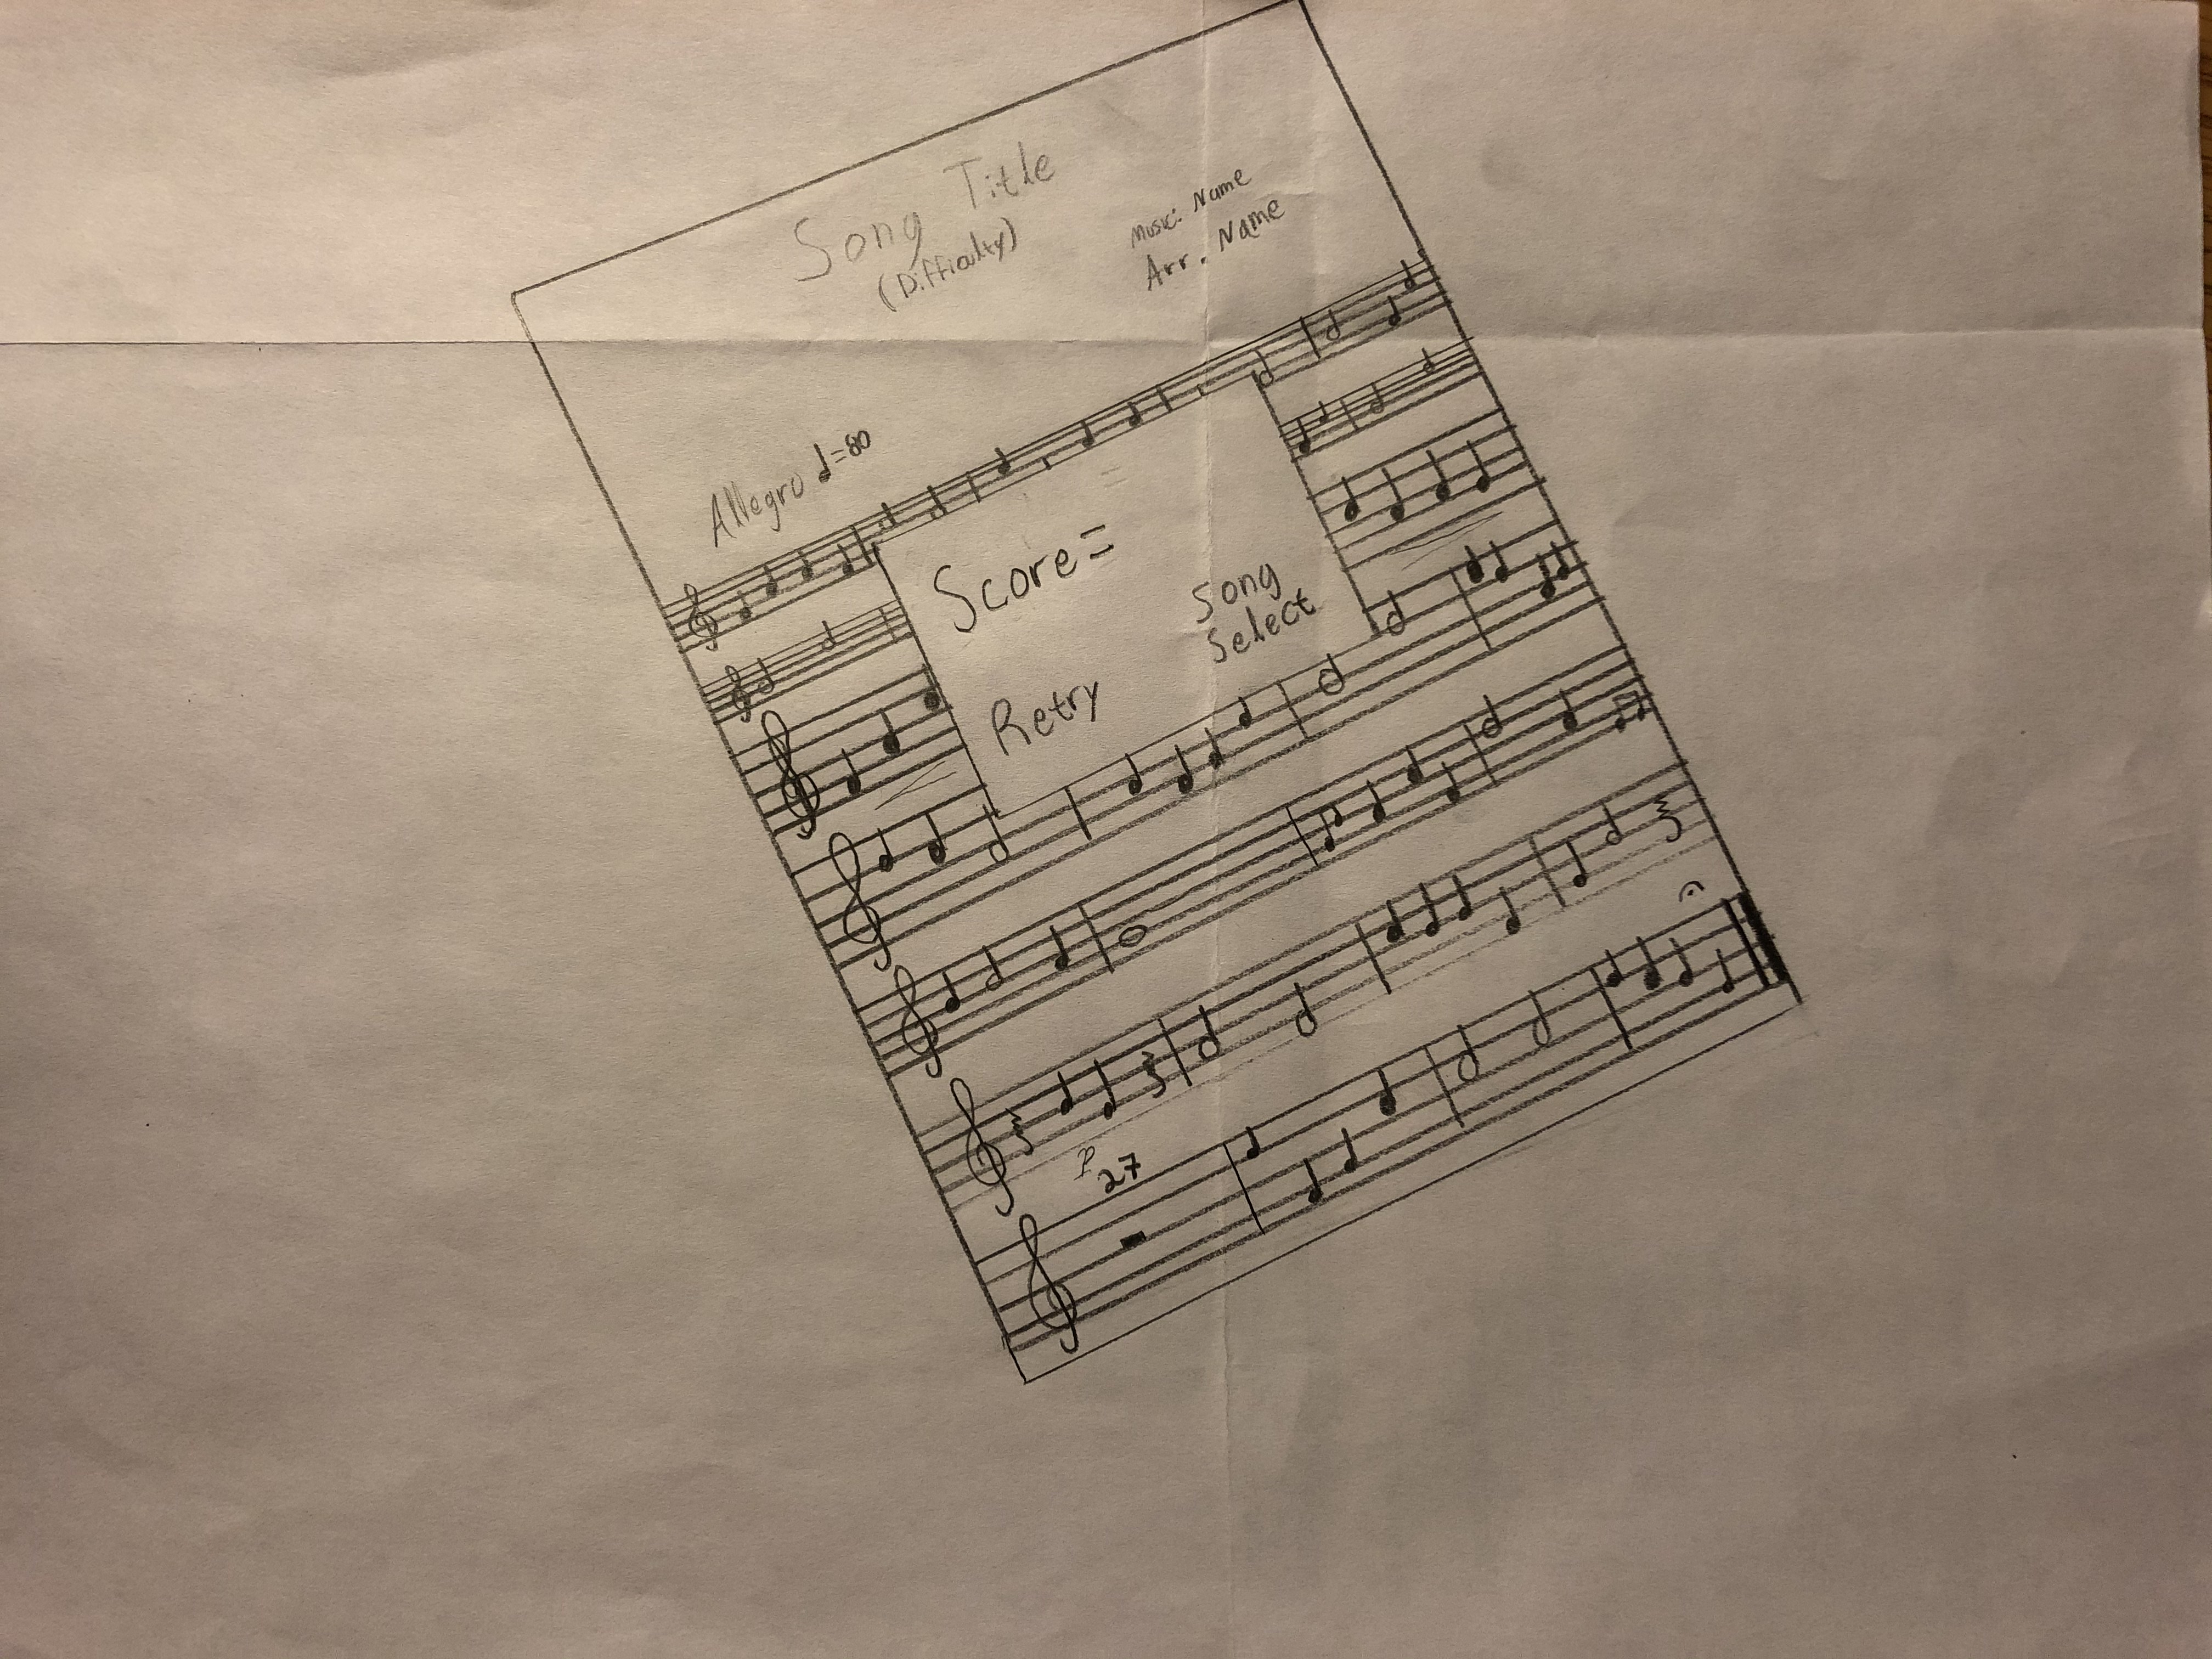 Song Title
(Difficulty)
Music: Name
Arr. Name
Allegro ♩=80
Score=
Song
Select
Retry
p
27